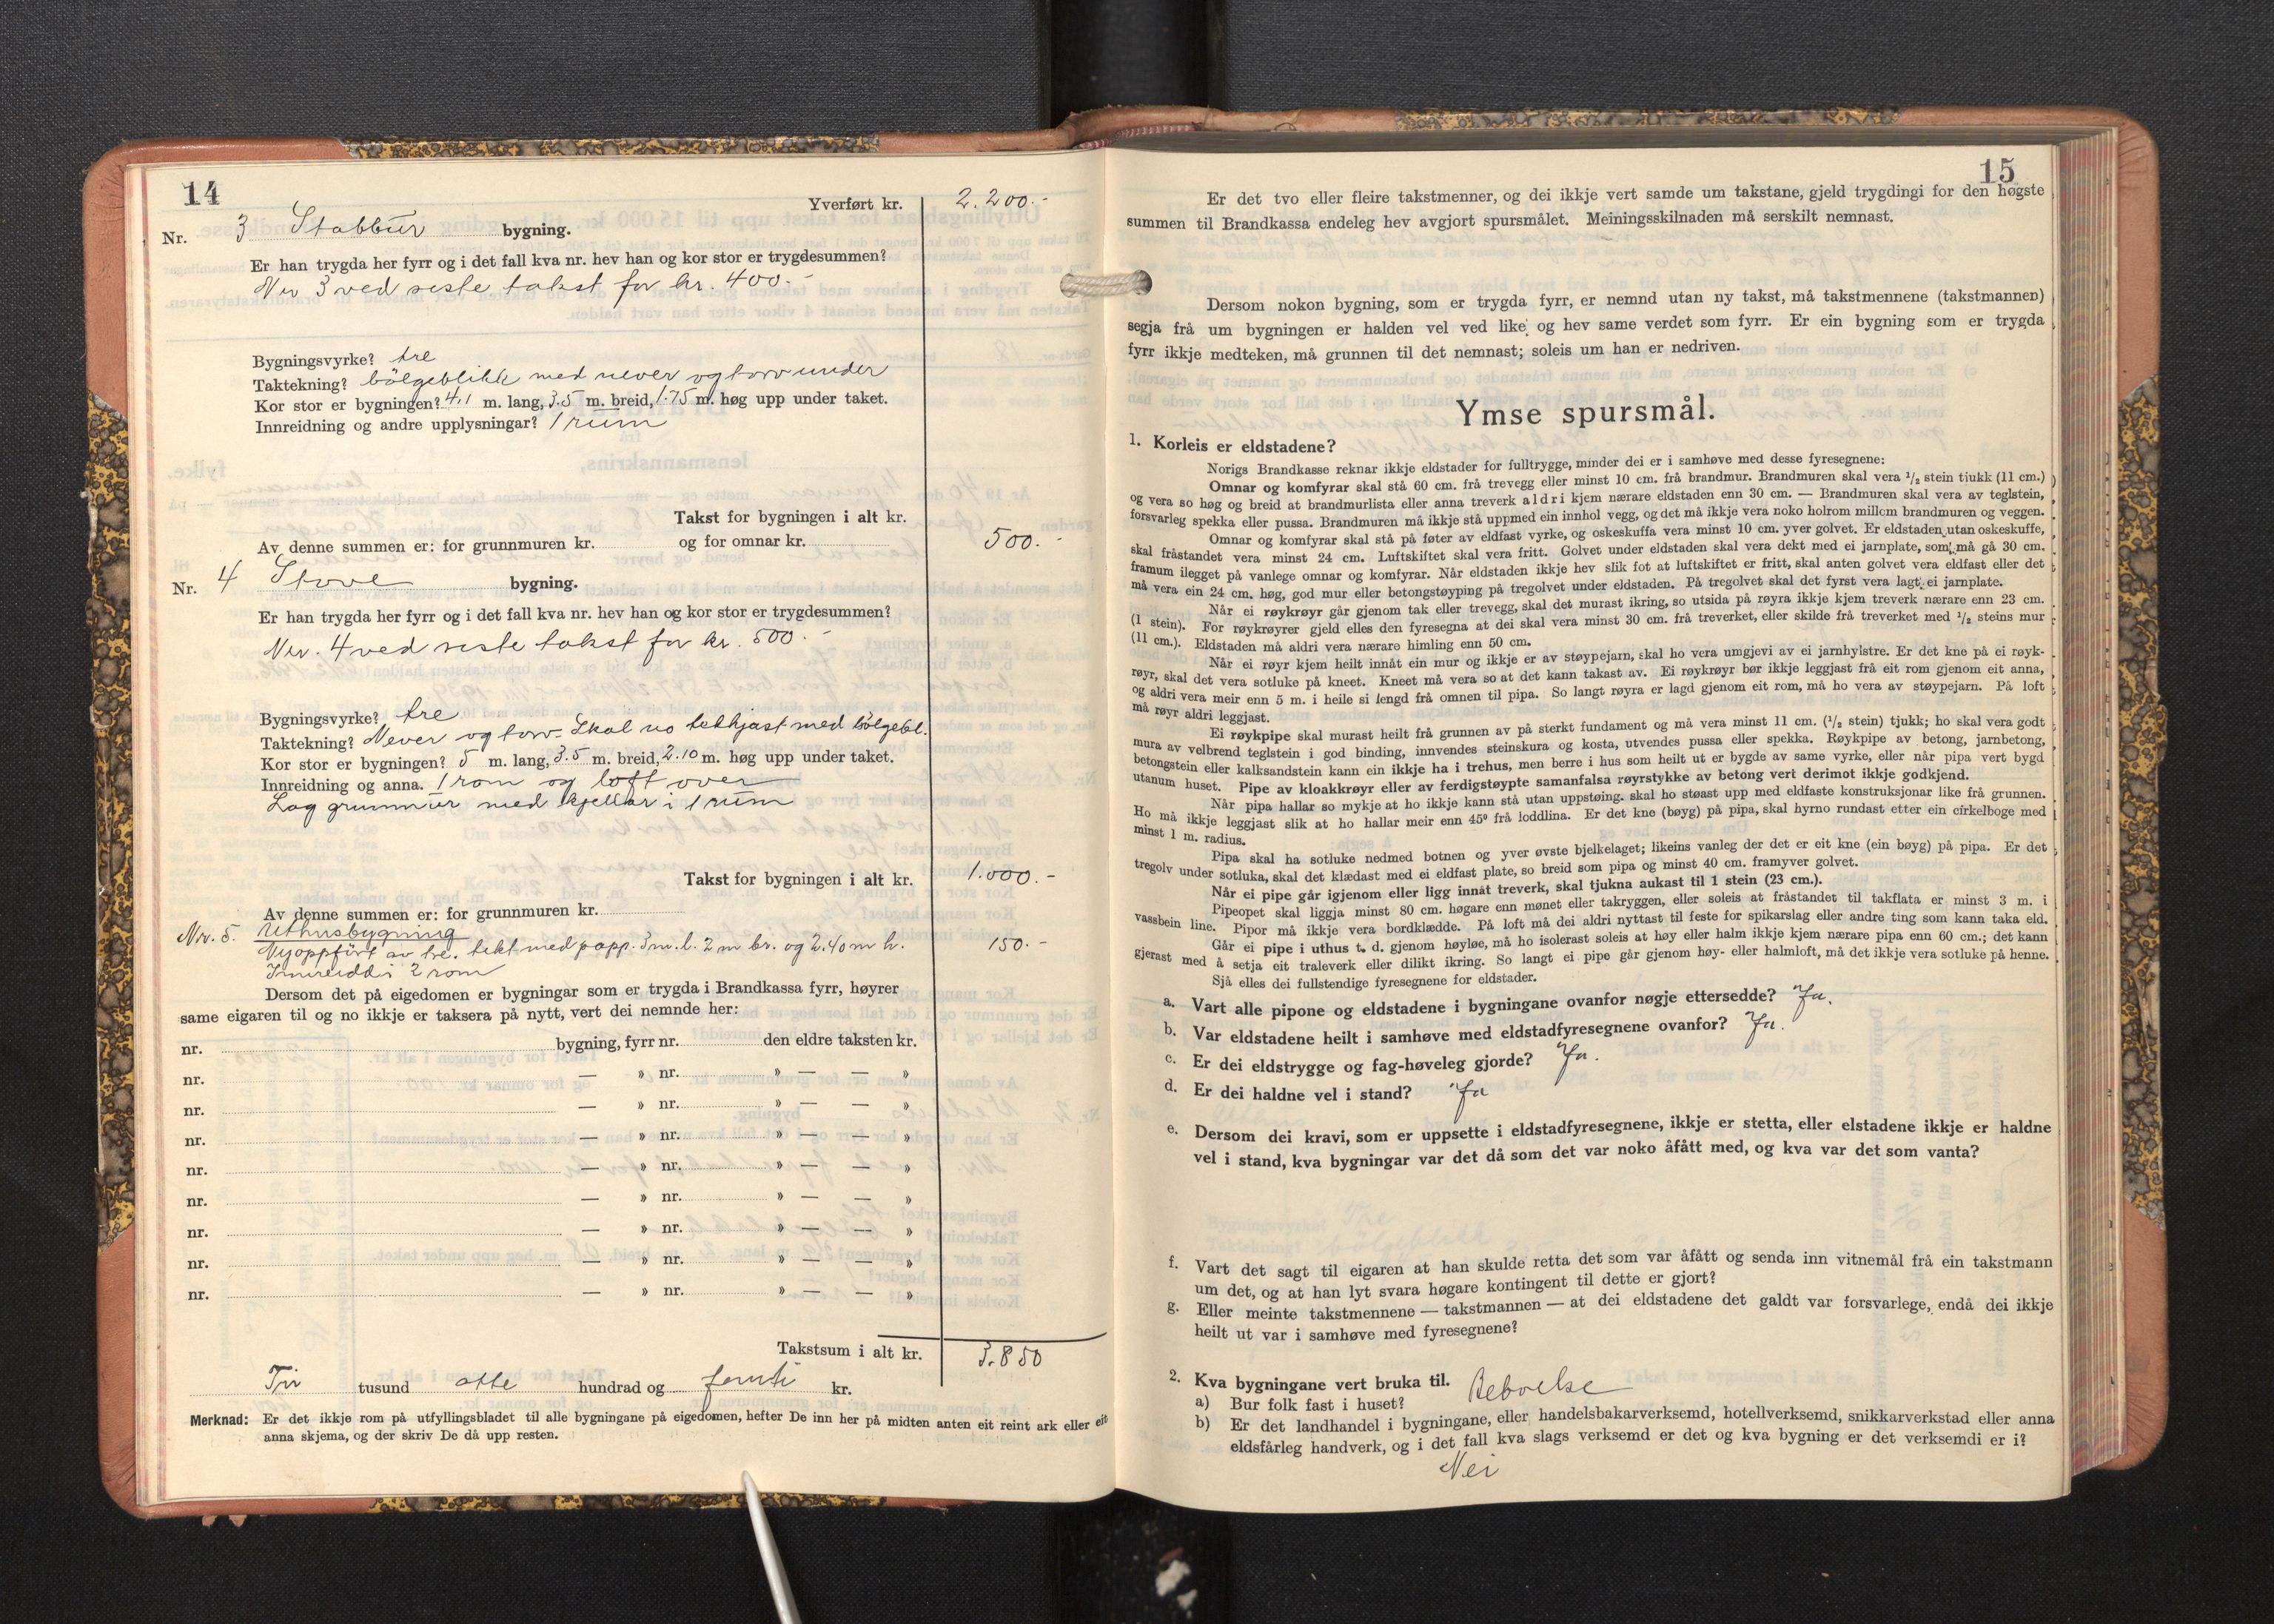 14
Yverført kr. 2.200.-
Nr. 3 Stabbur bygning.
Er han trygda her fyrr og i det fall kva nr. hev han og kor stor er trygdesummen?
Nr 3 ved siste takst for kr. 400.-
Bygningsvyrke? tre
Taktekning? bölgeblikk med never og torv under
Kor stor er bygningen? 4,1 m. lang, 3.5 m. breid, 1.75 m. høg upp under taket.
Innreidning og andre upplysningar? 1 rum
Takst for bygningen i alt kr.
Av denne summen er: for grunnmuren kr. og for omnar kr. 500.-
Nr. 4 Stove bygning.
Er han trygda her fyrr og i det fall kva nr. hev han og kor stor er trygdesummen?
Nr. 4 ved siste takst for kr. 500.-
Bygningsvyrke? tre
Taktekning? Never og torv. Skal no tekkjast med bölgebl.
Kor stor er bygningen? 5 m. lang, 3.5 m. breid, 2.10 m. høg upp under taket.
Innreidning og anna. 1 rom og loft over
Lag grunnmur med kjellar i 1 rum
Takst for bygningen i alt kr. 1.000.-
Av denne summen er: for grunnmuren kr.
Nr. 5. Uthusbygning
Nyoppført av tre. tekt med papp. 3 m. l. 2 m br. og 2.40 m h. 150.-
Innreidd i 2 rom
Dersom det på eigedomen er bygningar som er trygda i Brandkassa fyrr, høyrer
same eigaren til og no ikkje er taksera på nytt, vert dei nemnde her:
nr. bygning, fyrr nr. den eldre taksten kr.
nr. — » nr. » — — »
nr. — » nr. » — — »
nr. — » nr. » — — »
nr. — » nr. » — — »
nr. — » nr. » — — »
nr. — » nr. » — — »
nr. — » nr. » — — »
nr. — » nr. » — — »
Takstsum i alt kr. 3.850
Tri tusund otte hundrad og femti kr.
Merknad: Er det ikkje rom på utfyllingsbladet til alle bygningane på eigedomen, hefter De inn her på midten anten eit reint ark eller eit
anna skjema, og der skriv De då upp resten.
15
Er det tvo eller fleire takstmenner, og dei ikkje vert samde um takstane, gjeld trygdingi for den høgste
summen til Brandkassa endeleg hev avgjort spursmålet. Meiningsskilnaden må serskilt nemnast.
Dersom nokon bygning, som er trygda fyrr, er nemnd utan ny takst, må takstmennene (takstmannen)
segja frå um bygningen er halden vel ved like og hev same verdet som fyrr. Er ein bygning som er trygda
fyrr ikkje medteken, må grunnen til det nemnast; soleis um han er nedriven.
Ymse spursmål.
1. Korleis er eldstadene?
Norigs Brandkasse reknar ikkje eldstader for fulltrygge, minder dei er i samhøve med desse fyresegnene:
Omnar og komfyrar skal stå 60 cm. frå trevegg eller minst 10 cm. frå brandmur. Brandmuren skal vera ½ stein tjukk (11 cm.)
og vera so høg og breid at brandmurlista eller anna treverk aldri kjem nærare eldstaden enn 30 cm. — Brandmuren skal vera av teglstein,
forsvarleg spekka eller pussa. Brandmuren må ikkje stå uppmed ein innhol vegg, og det må ikkje vera noko holrom millom brandmuren og veggen.
Omnar og komfyrar skal stå på føter av eldfast vyrke, og oskeskuffa vera minst 10 cm. yver golvet. Er eldstaden utan oskeskuffe,
skal fråstandet vera minst 24 cm. Luftskiftet skal vera fritt. Golvet under eldstaden skal vera dekt med ei jarnplate, som må gå 30 cm.
framum ilegget på vanlege omnar og komfyrar. Når eldstaden ikkje hev slik fot at luftskiftet er fritt, skal anten golvet vera eldfast eller det
må vera ein 24 cm. høg, god mur eller betongstøyping på tregolvet under eldstaden. På tregolvet skal det fyrst vera lagt ei jarnplate.
Når ei røykrøyr går gjenom tak eller trevegg, skal det murast ikring, so utsida på røyra ikkje kjem treverk nærare enn 23 cm.
(1 stein). For røykrøyrer gjeld elles den fyresegna at dei skal vera minst 30 cm. frå treverket, eller skilde frå treverket med ½ steins mur
(11 cm.). Eldstaden må aldri vera nærare himling enn 50 cm.
Når ei røyr kjem heilt innåt ein mur og ikkje er av støypejarn, skal ho vera umgjevi av ei jarnhylstre. Er det kne på ei røyk-
røyr, skal det vera sotluke på kneet. Kneet må vera so at det kann takast av. Ei røykrøyr bør ikkje leggjast frå eit rom gjenom eit anna,
og aldri vera meir enn 5 m. i heile si lengd frå omnen til pipa. So langt røyra er lagd gjenom eit rom, må ho vera av støypejarn. På loft
må røyr aldri leggjast.
Ei røykpipe skal murast heilt frå grunnen av på sterkt fundament og må vera minst 11 cm. (½ stein) tjukk; ho skal vera godt
mura av velbrend teglstein i god binding, innvendes steinskura og kosta, utvendes pussa eller spekka. Røykpipe av betong, jarnbetong,
betongstein eller kalksandstein kann ein ikkje ha i trehus, men berre i hus som heilt ut er bygde av same vyrke, eller når pipa vert bygd
utanum huset. Pipe av kloakkrøyr eller av ferdigstøypte samanfalsa røyrstykke av betong vert derimot ikkje godkjend.
Når pipa hallar so mykje at ho ikkje kann stå utan uppstøing. skal ho støast upp med eldfaste konstruksjonar like frå grunnen.
Ho må ikkje leggjast slik at ho hallar meir enn 45° frå loddlina. Er det kne (bøyg) på pipa, skal hyrno rundast etter ein cirkelboge med
minst 1 m. radius.
Pipa skal ha sotluke nedmed botnen og yver øvste bjelkelaget; likeins vanleg der det er eit kne (ein bøyg) på pipa. Er det
tregolv under sotluka, skal det klædast med ei eldfast plate, so breid som pipa og minst 40 cm. framyver golvet.
Når ei pipe går igjenom eller ligg innåt treverk, skal tjukna aukast til 1 stein (23 cm.).
Pipeopet skal liggja minst 80 cm. høgare enn mønet eller takryggen, eller soleis at fråstandet til takflata er minst 3 m. i
vassbein line. Pipor må ikkje vera bordklædde. På loft må dei aldri nyttast til feste for spikarslag eller andre ting som kann taka eld.
Går ei pipe i uthus t. d. gjenom høyløe, må ho isolerast soleis at høy eller halm ikkje kjem nærare pipa enn 60 cm.; det kann
gjerast med å setja eit traleverk eller dilikt ikring. So langt ei pipe går gjenom høy- eller halmloft, må det ikkje vera sotluke på henne.
Sjå elles dei fullstendige fyresegnene for eldstader.
a. Vart alle pipone og eldstadene i bygningane ovanfor nøgje ettersedde? Ja.
b. Var eldstadene heilt i samhøve med eldstadfyresegnene ovanfor? Ja.
c. Er dei eldstrygge og fag-høveleg gjorde? Ja.
d. Er dei haldne vel i stand? Ja
e. Dersom dei kravi, som er uppsette i eldstadfyresegnene, ikkje er stetta, eller elstadene ikkje er haldne
vel i stand, kva bygningar var det då som det var noko åfått med, og kva var det som vanta?
f. Vart det sagt til eigaren at han skulde retta det som var åfått og senda inn vitnemål frå ein takstmann
um det, og at han lyt svara høgare kontingent til dette er gjort?
g. Eller meinte takstmennene — takstmannen — at dei eldstadene det galdt var forsvarlege, endå dei ikkje
heilt ut var i samhøve med fyresegnene?
2. Kva bygningane vert bruka til. Beboelse
a) Bur folk fast i huset?
b) Er det landhandel i bygningane, eller handelsbakarverksemd, hotellverksemd, snikkarverkstad eller anna
eldsfårleg handverk, og i det fall kva slags verksemd er det og kva bygning er det verksemdi er i?
Nei